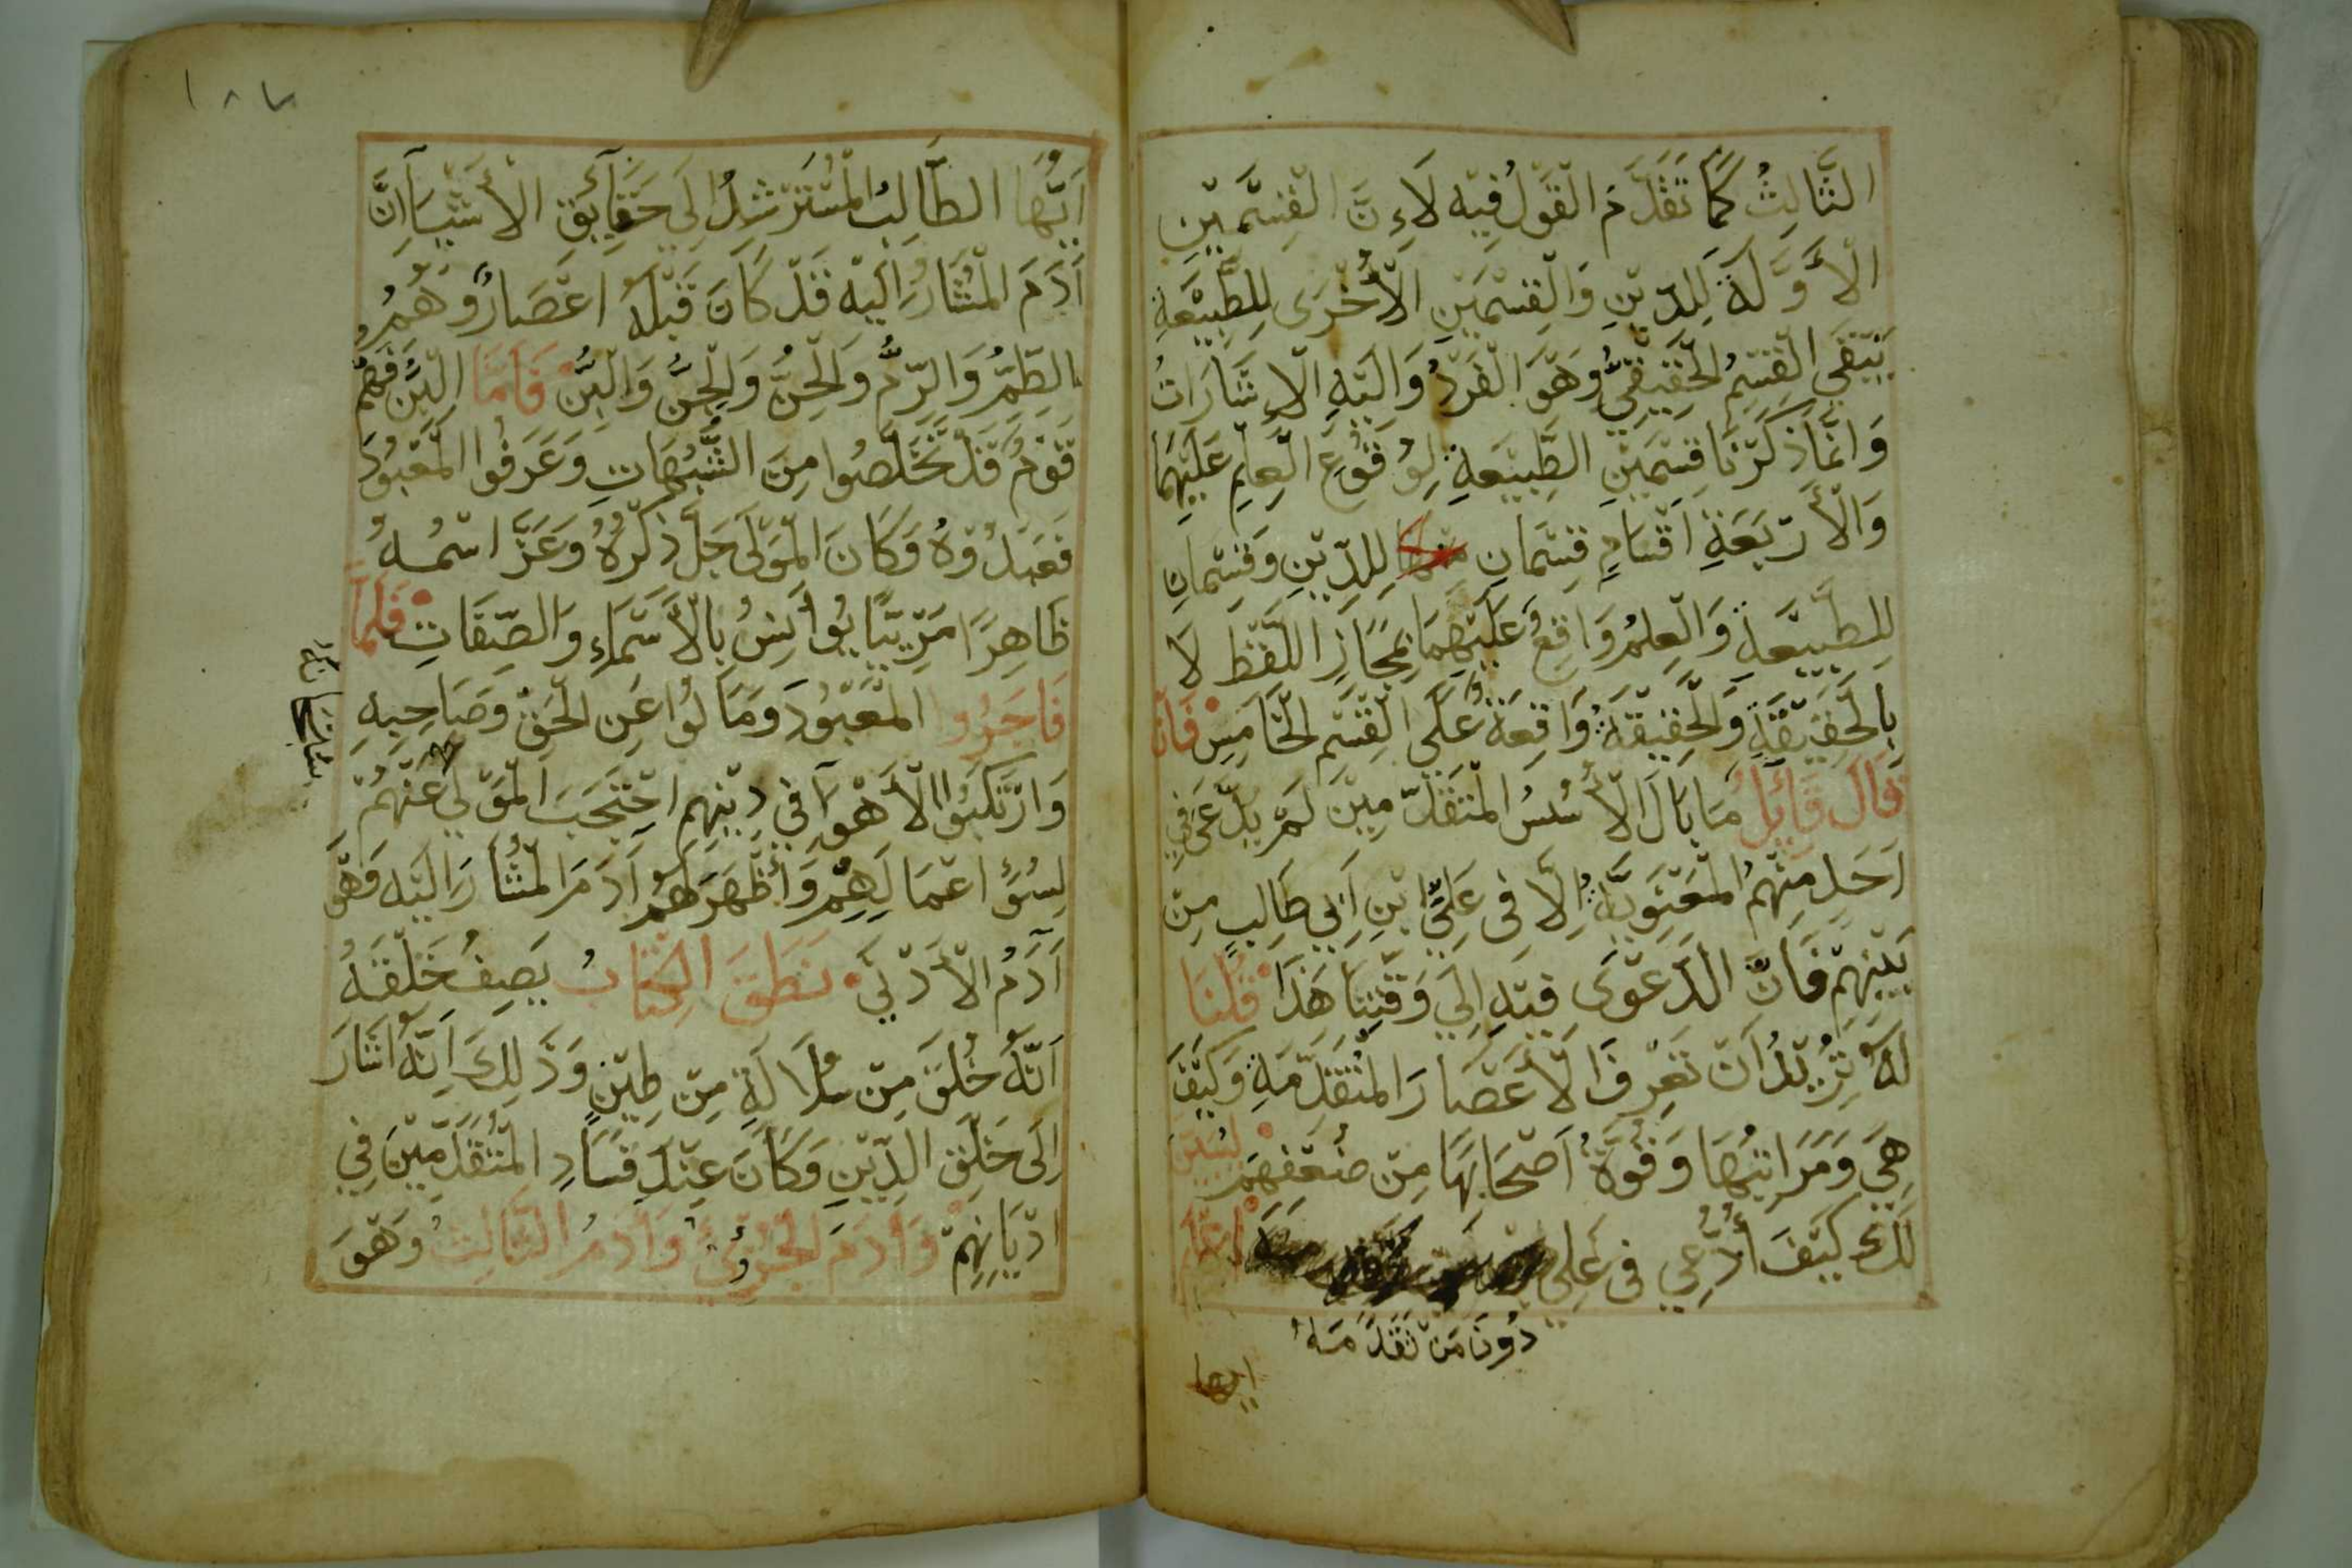 الثَّالِثُ كَمَا تَقَدَّمَ الْقَوْلُ فِيْهِ لَاءِنَّ الْقِسْمَيْنِ
الْأَوَّلَةَ لِلدِّيْنِ وَالْقِسْمَيْنِ الْأُخْرَى لِلطَّبِيْعَةِ
يَبْقَى الْقِسْمُ الْحَقِيْقِيُّ وَهْوَ الْفَرْدُ وَالَيْهِ الْاِشَارَاتُ
وَانَّمَا ذَكَرْنَا قِسْمَيْنِ الطَّبِيْعَةِ لِوُقُوْعِ الْعِلْمِ عَلَيْهِمَا
وَالْأَرْبَعَةِ اَقْسَامٍ قِسْمَانِ لِلدِّيْنِ وَقِسْمَانِ
لِلطَّبِيْعَةِ وَالْعِلْمُ وَاقِعُ عَلَيْهِمَا بِمَجَازِ اللَّفْظِ لَا
بِالْحَقِيْقَةِ وَالْحَقِيْقَةُ وَاقِعَةُ عَلَى الْقِسْمِ الْخَامِسِ فَانْ
قَالَ قَائِلُ مَا بَالَ الْأُسُسُ الْمُتَقَدِّمِيْنَ لَمْ يُدَّعَى فِي
اَحَدٍ مِنْهُمُ الْمَعْنَوِيَّةُ اِلَّا فِى عَلِيِّ ابْنِ اَبِي طَالِبٍ مِنْ
بَيْنِهِمْ فَانَّ الْدَعْوَى فِيْهِ اِلَى وَقْتِنَا هَذَا قُلْنَا
لَهُ تُرِيْدُ اَنْ تَعْرِفَ الْأَعْصَارَ الْمُتَقَدِّمَةِ وَكَيْفَ
هِيَ وَمَرَاتِبُهَا وَقُوَّةُ اَصْحَابِهَا مِنْ ضُعْفِهِمْ لِنُبَيِّنَ
لَكَ كَيْفَ اُدُّعِي فِى عَلِي اِعْلَمْ
دُونَ مَنْ تَقَدَّمَهُ
ايها
١٨٧
اَيُّهَا الطَّالِبُ الْمُسْتَرْشِدُ اِلَى حَقَآيِقِ الْأَشْيَآ اِنَّ
آدَمَ الْمُشَارُ اِلَيْهِ قَدْ كَانَ قَبْلَهُ اعْصَارٌ وَهُمُ
الطِّمُّ وَالرِّمُّ وَالْحِنُّ وَالْجِنُّ وَالْبِنُّ فَامَّا الْبِنُّ فَهُمْ
قَوْمُ قَدْ تَخَلَّصُوا مِنَ الشُّبُهَاتِ وَعَرَفُوا الْمَعْبُوْدَ
فَعَبَدُوْهُ وَكَانَ الْمَوْلَى جَلَّ ذِكْرُهُ وَعَزَّ اسْمُهُ
ظَاهِرًا مَرْيِيًّا يُوانِسُ بِالْأَسْمَاءِ وَالصِّفَاتِ فَلَمَّا
فَاجَرُوا الْمَعْبُوْدَ وَمَالُوْا عَنِ الْحَقِّ وَصَاحِبِهِ
وَارْتَكَبُوْا الْأَهْوَآ فِي دِيْنِهِمِ احْتَجَبَ الْمَوْلَى عَنْهُمْ
لِسُوْءِ اعْمَالِهِمْ وَأَظْهَرَ لَهُمْ آدَمَ الْمُشَارَ اِلَيْهِ فَهْوَ
آدَمُ الْأَدْنَي نَطَقَ الكِتَابُ يَصِفُ خَلْقَهُ
اَنَّهُ خُلِقَ مِنْ سُلَالَةٍ مِنْ طِيْنٍ وَذَلِكَ اَنَّهُ اَشَارَ
اِلَى خَلْقِ الدِّيْنِ وَكَانَ عِنْدَ فَسَادِ الْمُتَقَدِّمِيْنَ فِي
ادْيَانِهِمْ وَآدَمَ الْجُزْوئِيُّ وَآدَمُ الثَّالِثُ وَهْوَ